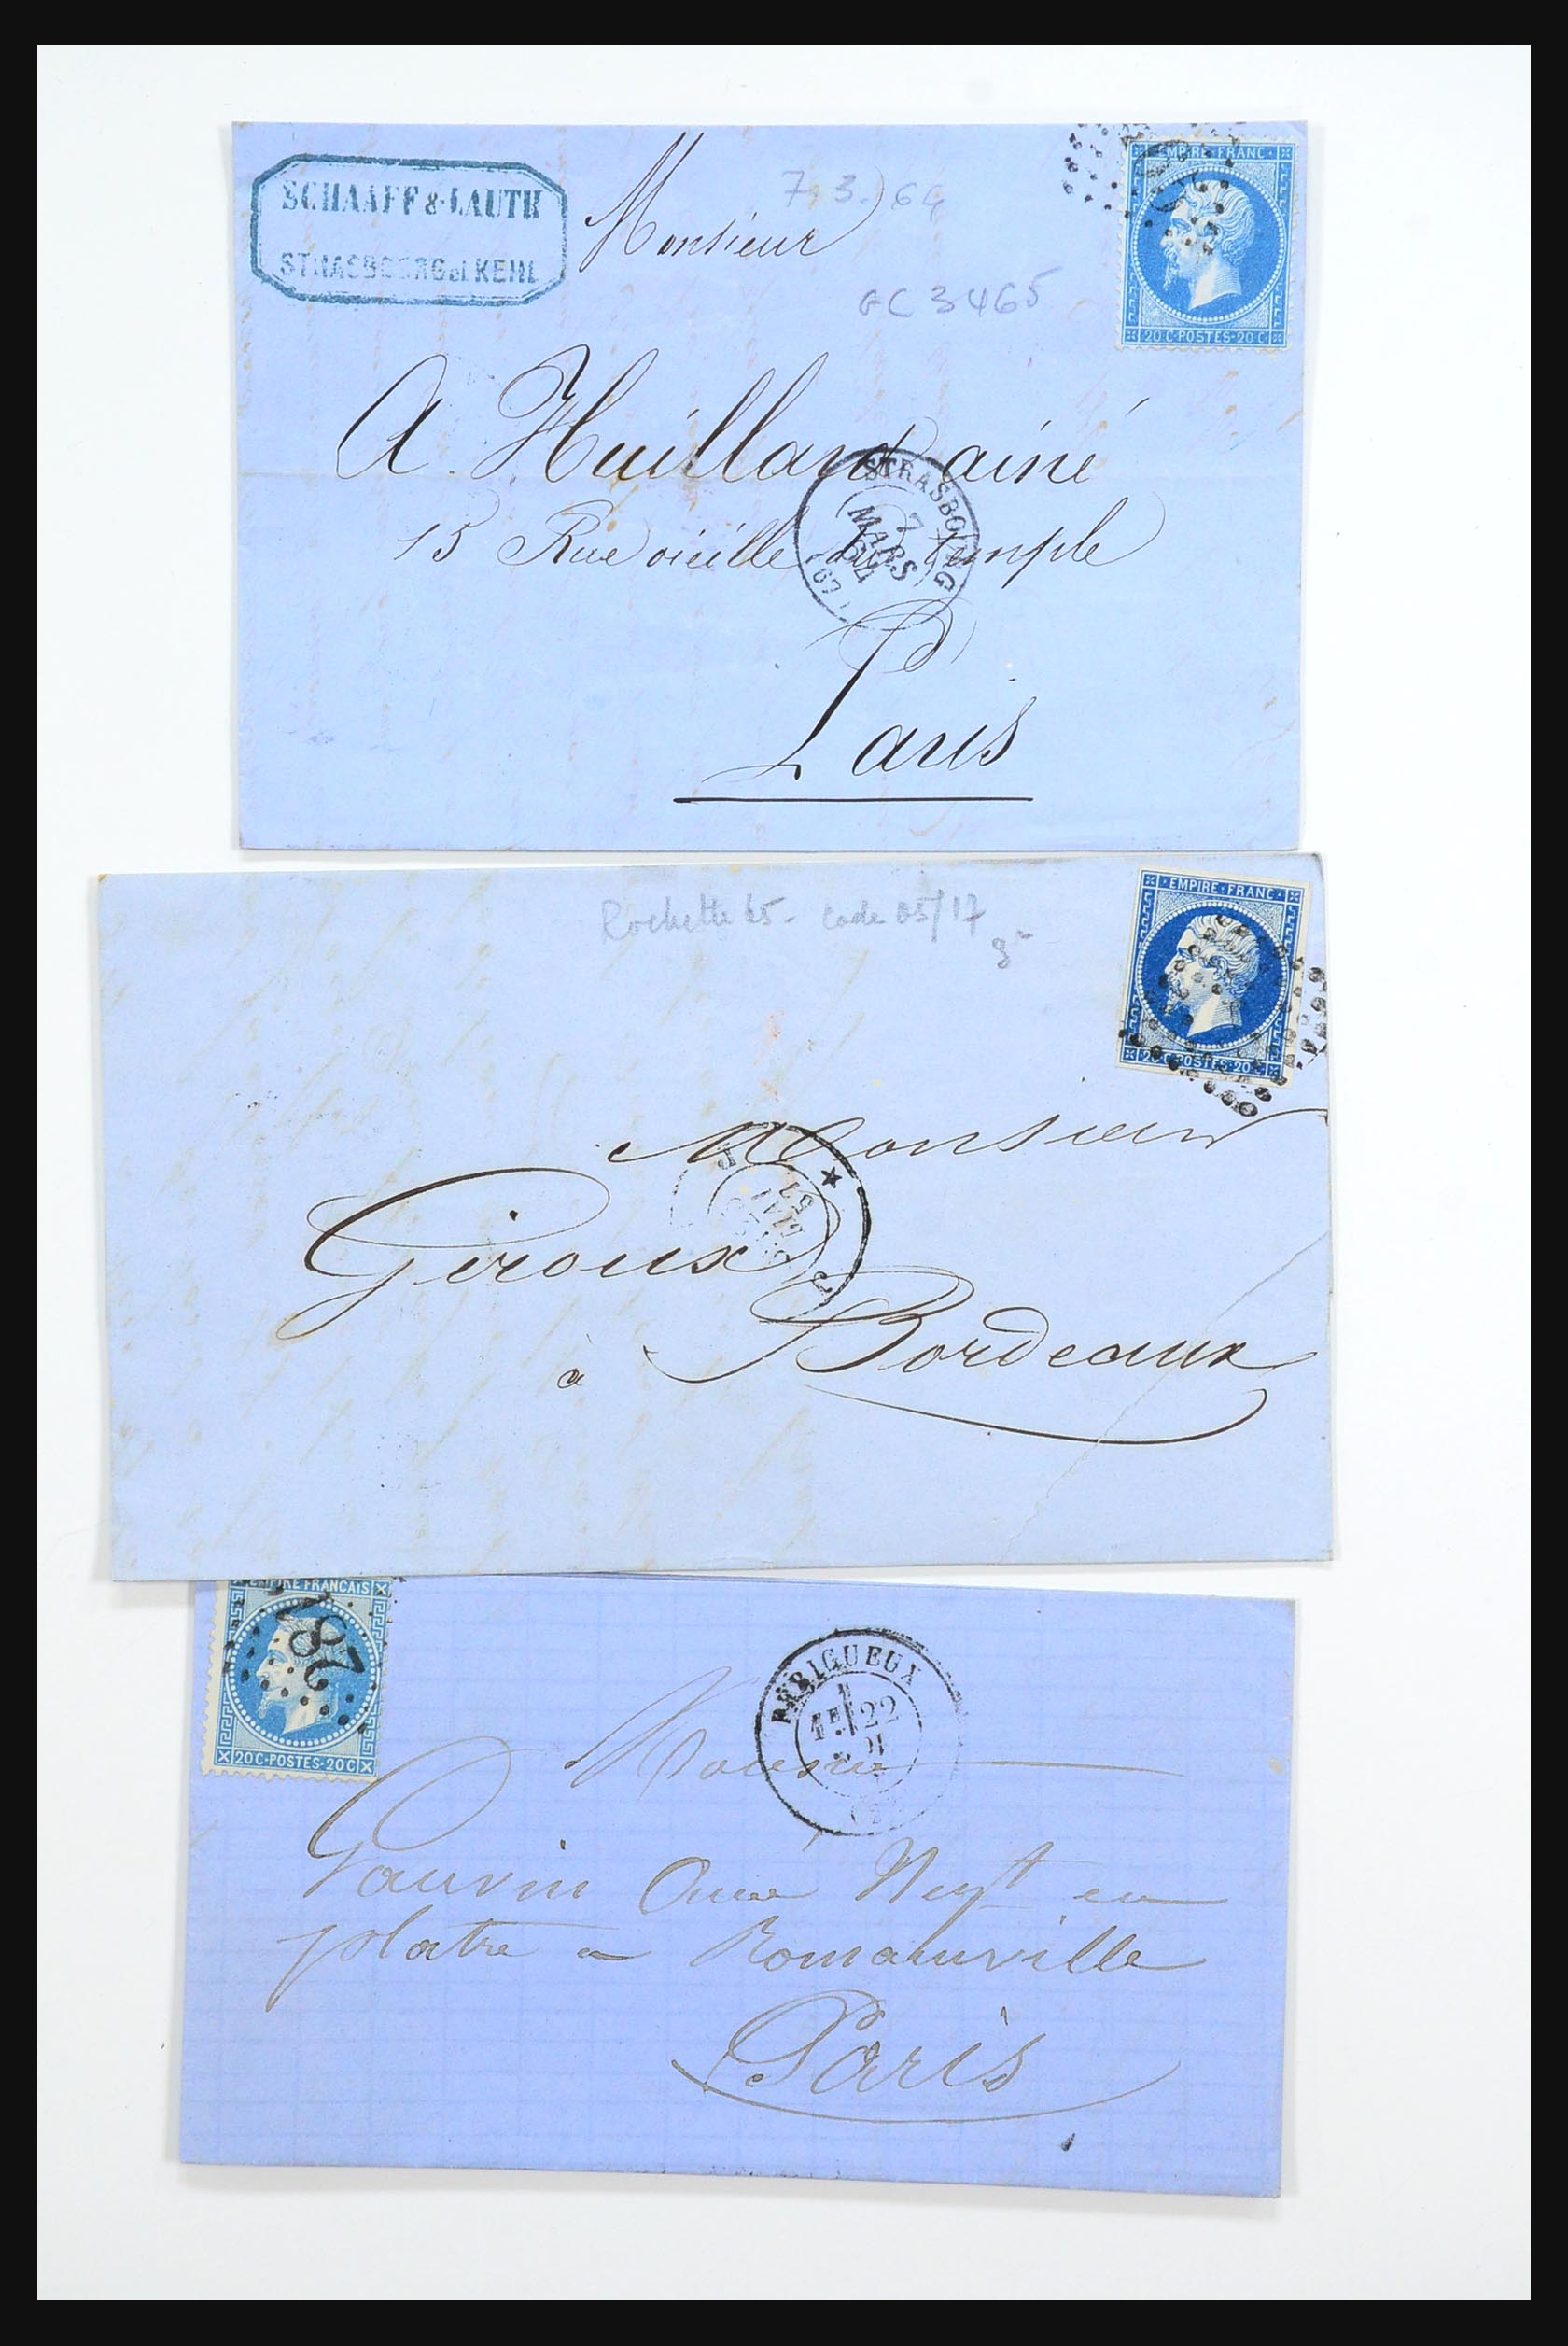 SCHAAFF & LAUTH
STRASBOURG et KEHL
Monsieur
7.3.64
GC 3465
EMPIRE FRANC
20 C·POSTES·20 C
A. Huillard ainé
STRASBOURG
7
MARS
64
(67)
15 Rue vieille du temple
Paris
Rochette 25 - code 05/17
EMPIRE·FRANC
20 C·POSTES·20 C
Monsieur
Giroux
à Bordeaux
J
MAI
57
EMPIRE FRANCAIS
20 C·POSTES·20 C
PÉRIGUEUX
22
Monsieur
Gauvin Ainé Negt en
platre a Romainville
Paris